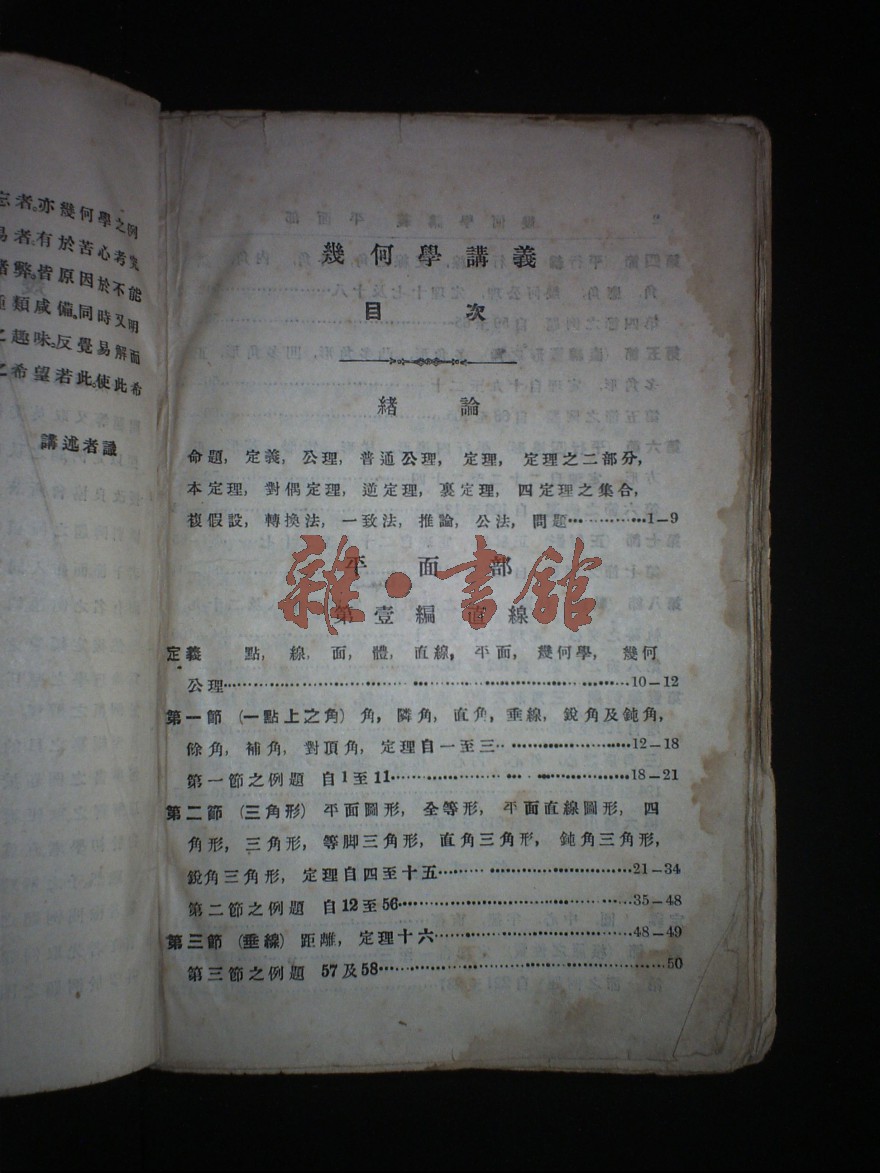 忘者。亦幾何學之例
易者。有於苦心考
者弊。皆原因於不能
種類咸備。同時又明
之趣味。反覺易解而
之希望若此。使此希
講述者識
幾何學講義
目次
緒論
命題, 定義, 公理, 普通公理, 定理, 定理之二部分,
本定理, 對偶定理, 逆定理, 裏定理, 四定理之集合,
複假設, 轉換法, 一致法, 推論, 公法, 問題……………1–9
平面部
雜·書館
第壹編 直線
定義 點, 線, 面, 體, 直線, 平面, 幾何學, 幾何
公理……………10–12
第一節 (一點上之角) 角, 隣角, 直角, 垂線, 銳角及鈍角,
餘角, 補角, 對頂角, 定理自一至三……………12–18
第一節之例題 自1至11……………18–21
第二節 (三角形) 平面圖形, 全等形, 平面直線圖形, 四
角形, 三角形, 等脚三角形, 直角三角形, 鈍角三角形,
銳角三角形, 定理自四至十五……………21–34
第二節之例題 自12至56……………35–48
第三節 (垂線) 距離, 定理十六……………48–49
第三節之例題 57及58……………50